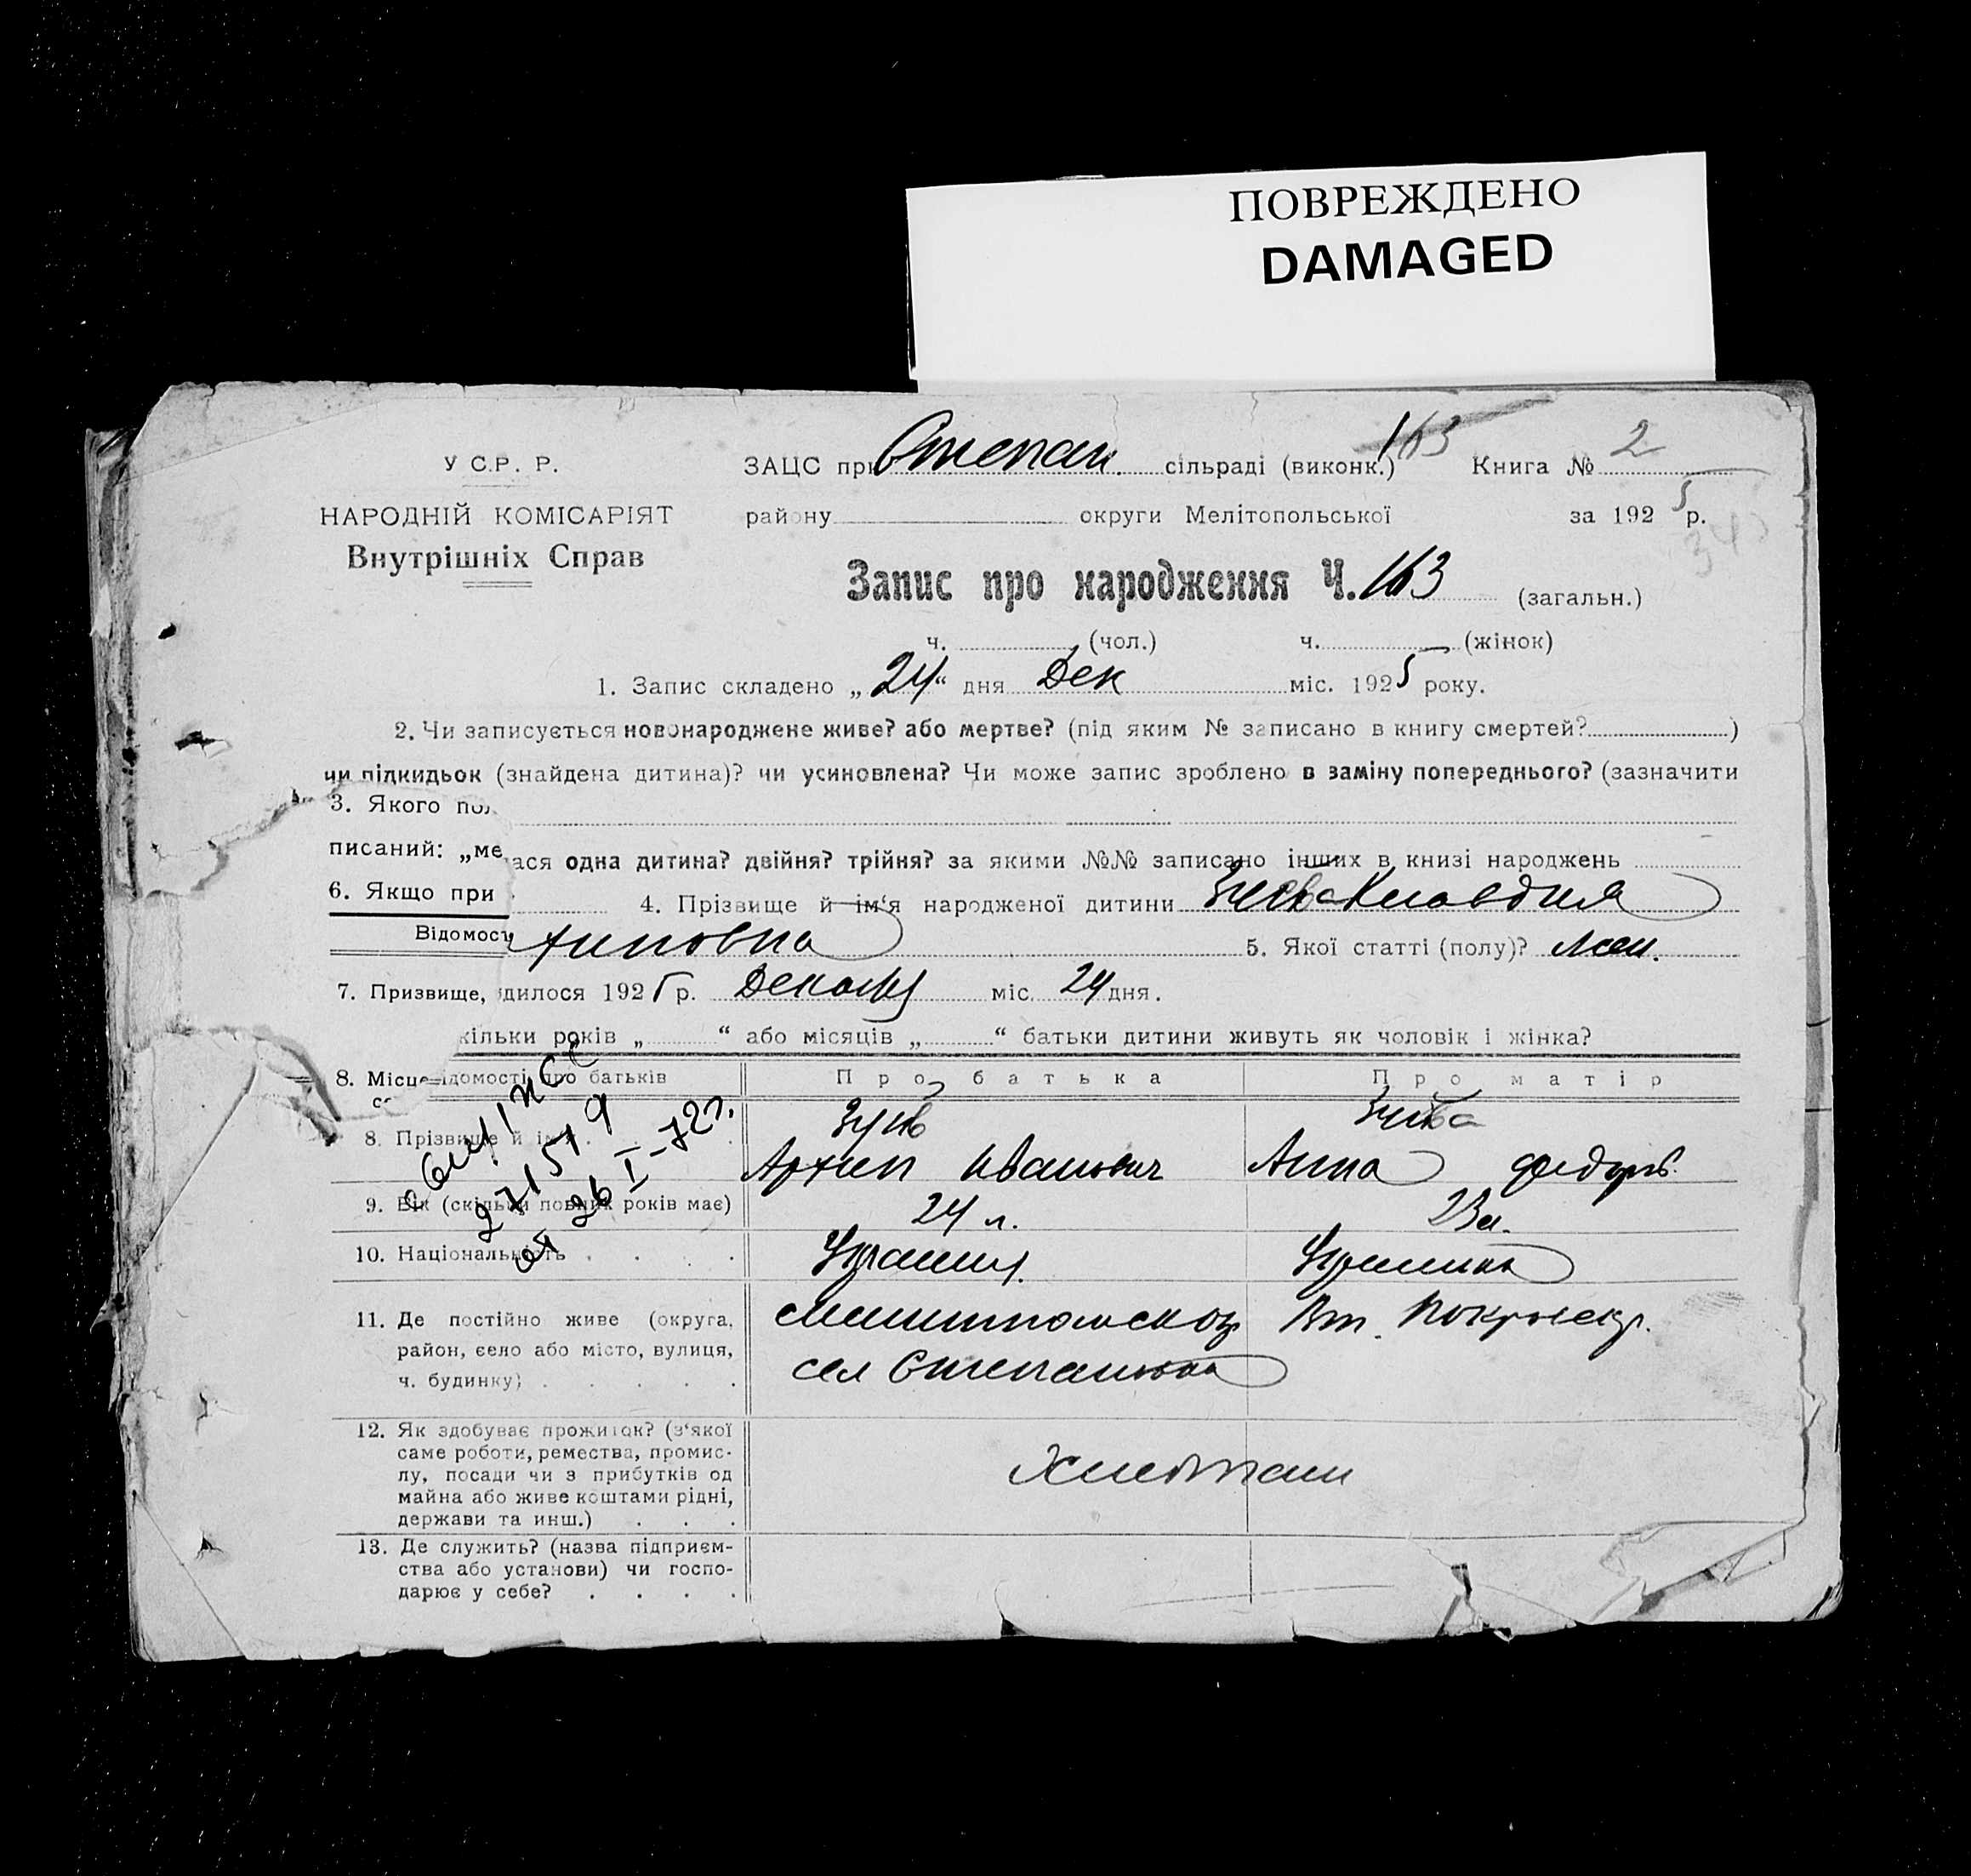 ПОВРЕЖДЕНО
DAMAGED
У С.Р. Р.
НАРОДНІЙ КОМІСАРІЯТ
Внутрішніх Справ
ЗАЦС при Степан. сільраді (виконк.) 163 Книга № 2
району округи Мелітопольської за 1925 р.
Запис про народження Ч. 163 (загальн.)
ч. (чол.) ч. (жінок)
1. Запис складено „24“ дня Дек міс. 1925 року.
2. Чи записується новонароджене живе? або мертве? (під яким № записано в книгу смертей? )
чи підкидьок (знайдена дитина)? чи усиновлена? Чи може запис зроблено в заміну попереднього? (зазначити
3. Якого пол
писаний: „ме
лася одна дитина? двійня? трійня? за якими №№ записано інших в книзі народжень
6. Якщо при
4. Прізвище й ім‘я народженої дитини Клавдия
Відомост
5. Якої статті (полу)? жен.
7. Призвище,
дилося 1925 р. Декабр міс. 24 дня.
кільки років „ “ або місяців „ “ батьки дитини живуть як чоловік і жінка?
8. Місце
ідомості про батьків Про батька Про матір
8. Прізвище й ім‘я
Архип Иванович Анна Федоров.
9. Вік (скільки повних років має) 24 л. 23 л.
10. Національність Украинц. Украинка
11. Де постійно живе (округа, район, село або місто, вулиця, ч. будинку)
Мелитопольской Вт. Покровск.
сел Степановка
12. Як здобуває прожиток? (з‘якої
саме роботи, ремества, промис-
лу, посади чи з прибутків од
майна або живе коштами рідні,
держави та инш.)
13. Де служить? (назва підприєм-
ства або установи) чи госпо-
дарює у себе?
271519
от 26 I-72г.